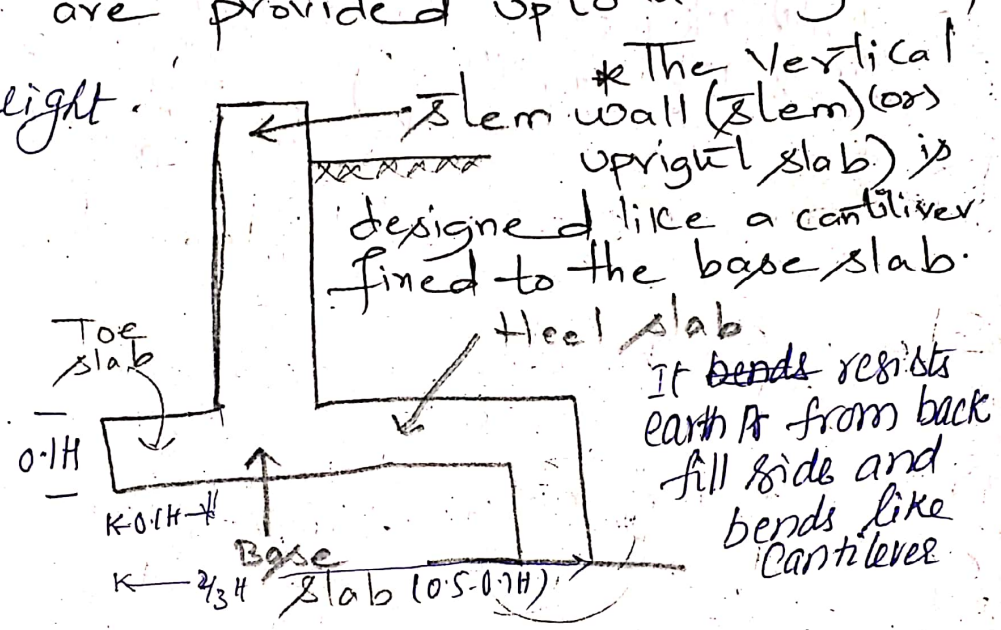 are provided upto a
eight.
* The vertical
Stem wall (stem) (or)
upright slab) is
designed like a cantiliver
fined to the base slab.
Heel slab
Toe
slab
It bends resists
earth Pr from back
fill side and
bends like
Cantilever
0.1H
K-0.1H-X
Base
K— 2/3 H Slab (0.5-0.7H)